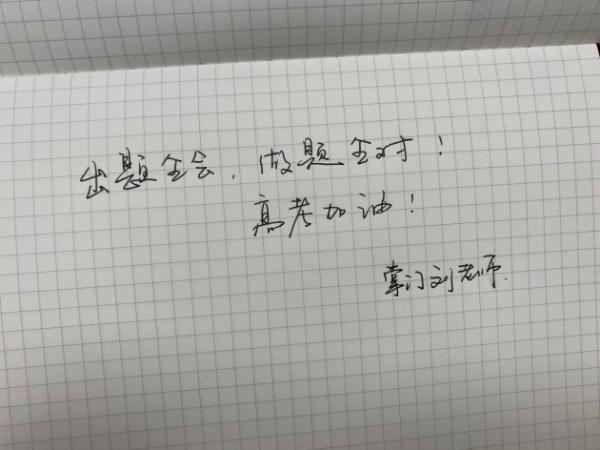 出题全会，做题全对！
高考加油！
掌门刘老师.